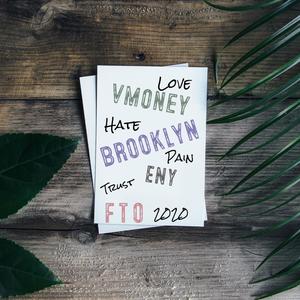 Love
VMONEY
Hate
BROOKLYN
Pain
ENY
Trust
FTO 2020